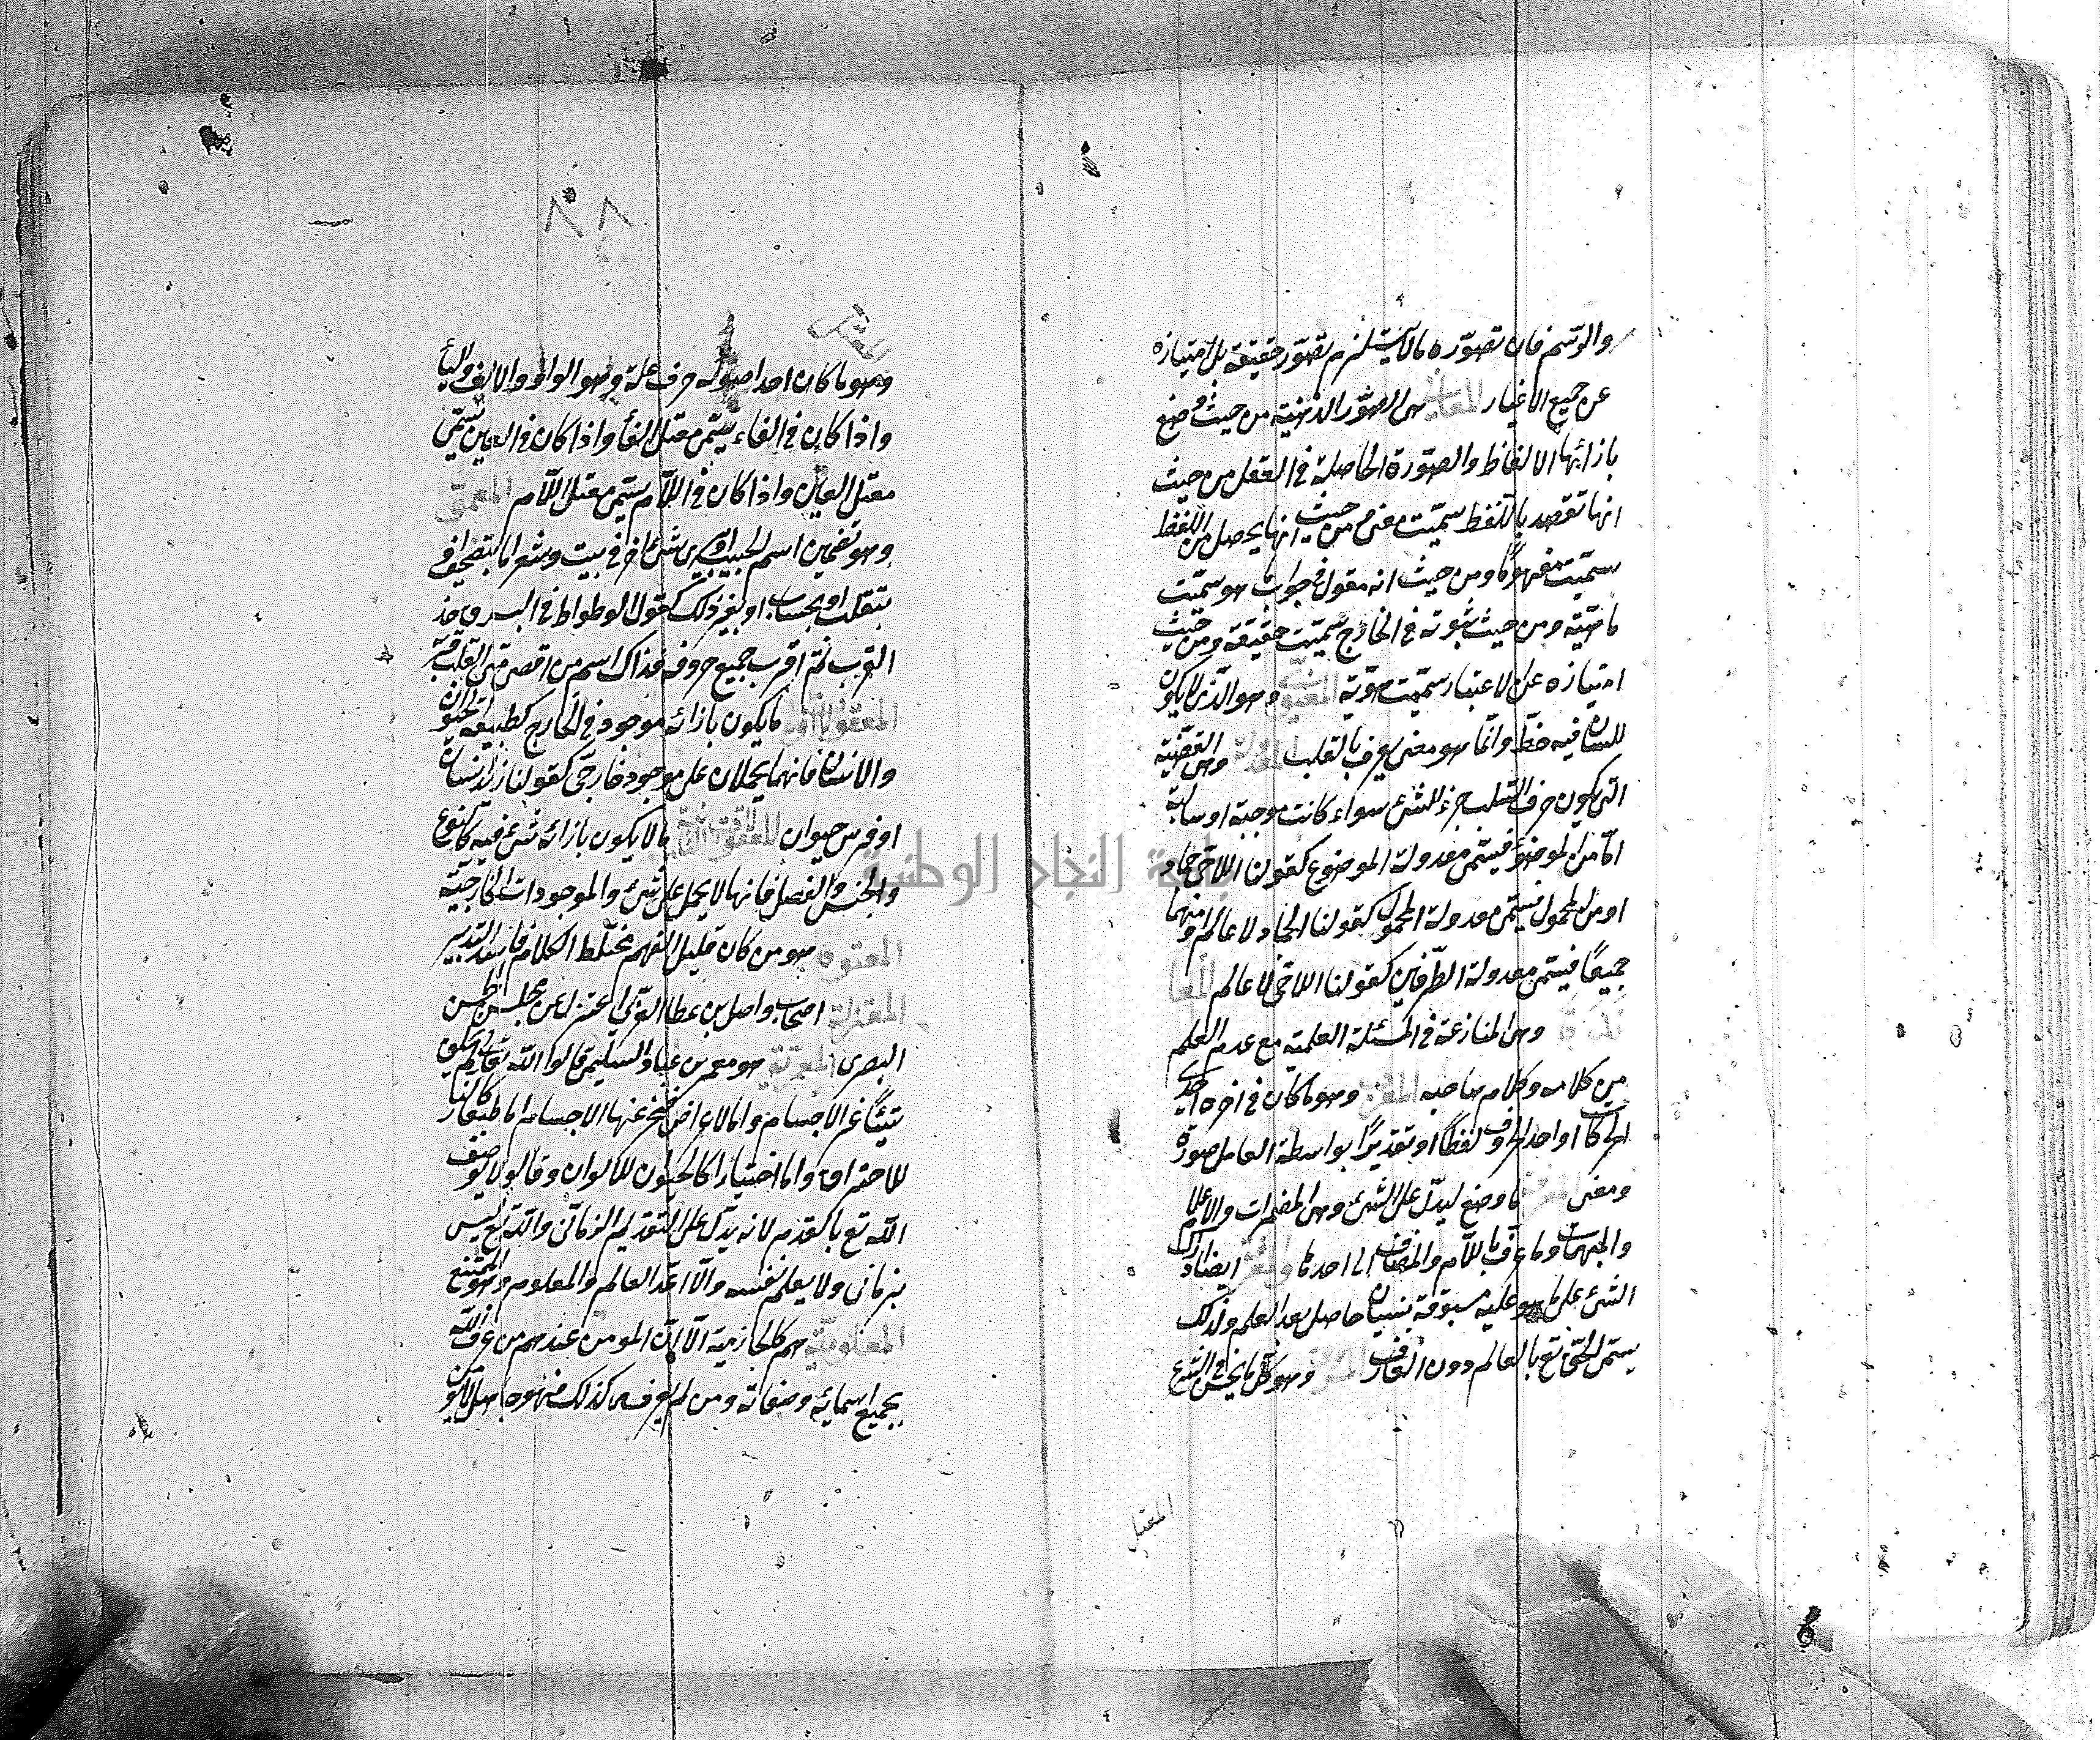 والرسم فان تصوره ما لا يستلزم تصور حقيقة بل امتيازه
عن جميع الاغيار المعانى هى الصور الذهنية من حيث وضع
بازائها الالفاظ والصورة الحاصلة فى العقل من حيث
انها تقصد باللفظ سميت معنى ومن حيث انها يحصل من اللفظ
سميت مفهوما ومن حيث انه مقول فى جواب ما هو سميت
ماهية ومن حيث ثبوته فى الخارج سميت حقيقة ومن حيث
امتيازه عن الاعتبار سميت هوية المعنوى وهو الذى لا يكون
للسان فيه حظ وانما هو معنى يعرف بالقلب المعدولة وهى القضية
التى يكون حرف السلب جزء للشئ سواء كانت موجبة او سالبة
اما من الموضوع فيسمى معدولة الموضوع كقولنا اللاحى جماد
او من المحمول فيسمى معدولة المحمول كقولنا الجماد لا عالم او منهما
جميعا فيسمى معدولة الطرفين كقولنا اللاحى لا عالم المعا
ندة وهى المنازعة فى المسئلة العلمية مع عدم العلم
من كلامه وكلام صاحبه المعرب وهو ما كان فى اخره احدى
الحركات او احد الحروف لفظا او تقديرا بواسطة العامل صورة
ومعنى المعرفة ما وضع ليدل على الشئ وهى المضمرات والاعلام
والمبهمات وما عرف باللام والمضاف الى احدها والمعرفة ايضا ادراك
الشئ على ما هو عليه مسبوقة بنسيان حاصل بعد العلم ولذلك
يسمى الحق تع بالعالم دون العارف وهو كل ما يحسن فى الشرع
المعتل
٨٨
المعتل
وهو ما كان احد اصوله حرف علة وهو الواو والالف والياء
واذا كان فى الفاء يسمى معتل الفاء واذا كان فى العين يسمى
معتل العين واذا كان فى اللام يسمى معتل اللام المعمى
وهو تضمين اسم الحبيب او شئ اخر فى بيت وشعر اما بتصحيف
بتقلب او بحساب او بغير ذلك كقول الوطواط فى البرق خذ
القرب ثم اقرب جميع حروفه فذاك اسم من اقصى منى القلب قربه
المعقولات الاولى ما يكون بازائه موجود فى الخارج كطبيعة الحيوان
والانسان فانهما يحملان على موجود خارجى كقولنا زيد انسان
او فرس حيوان المعقولات الثانية ما لا يكون بازائه شئ فيه كالنوع
والجنس والفصل فانها لا يحمل على شئ والموجودات الخارجية
المعتوه هو من كان قليل الفهم مختلط الكلام فاسد التدبير
المعتزلة اصحاب واصل بن عطا الغزالى اعتزل عن مجلس الحسن
البصرى المعمرية هو معمر بن عباد السليمى قالوا الله تعالى لم يخلق
شيئا غير الاجسام واما الاعراض فيخرعها الاجسام اما طبعا كالنار
للاحتراق واما اختيارا كالحيوان للالوان وقالوا لا يوصف
الله تع بالقدم لانه يدل على التقديم الزمانى والله تع ليس
بزمانى ولا يعلم نفسه والا اتحد العالم والمعلوم وهو ممتنع
المعلومية هم كالحازمية الا ان المومن عندهم من عرف الله
بجميع اسمائه وصفاته ومن لم يعرفه كذلك فهو جاهل لا مومن